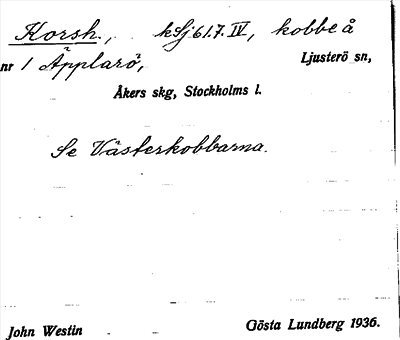 Korsh., kSj 61.7. IV, kobbe å
nr 1 Äpplarö, Ljusterö sn,
Åkers skg, Stockholms l.
Se Västerkobbarna.
John Westin Gösta Lundberg 1936.